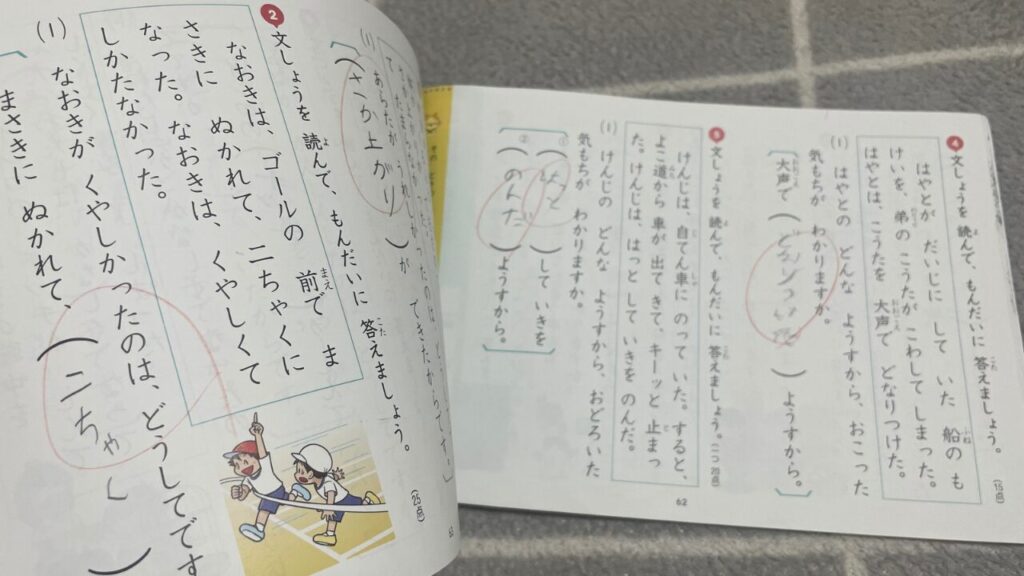 ❹ 文しょうを 読んで、もんだいに 答えましょう。
(15点)
はやとが だいじに して いた 船の も
けいを、弟の こうたが こわして しまった。
はやとは、こうたを 大声で どなりつけた。
(1) はやとの どんな ようすから、おこった
気もちが わかりますか。
大声で ( ) ようすから。
❺ 文しょうを 読んで、もんだいに 答えましょう。(一つ20点)
けんじは、自てん車に のって いた。すると、
よこ道から 車が 出て きて、キーッと 止まっ
た。けんじは、はっと して いきを のんだ。
(1) けんじの どんな ようすから、おどろいた
気もちが わかりますか。
① (はっと) して いきを
② (のんだ) ようすから。
62
(1)
あらたが うれしかったのは、
(さか上がり) が できたからです。
❷ 文しょうを 読んで、もんだいに 答えましょう。
(25点)
なおきは、ゴールの 前で ま
さきに ぬかれて、二ちゃくに
なった。なおきは、くやしくて
しかたなかった。
(1) なおきが くやしかったのは、どうしてです
まさきに ぬかれて、(二ちゃく)